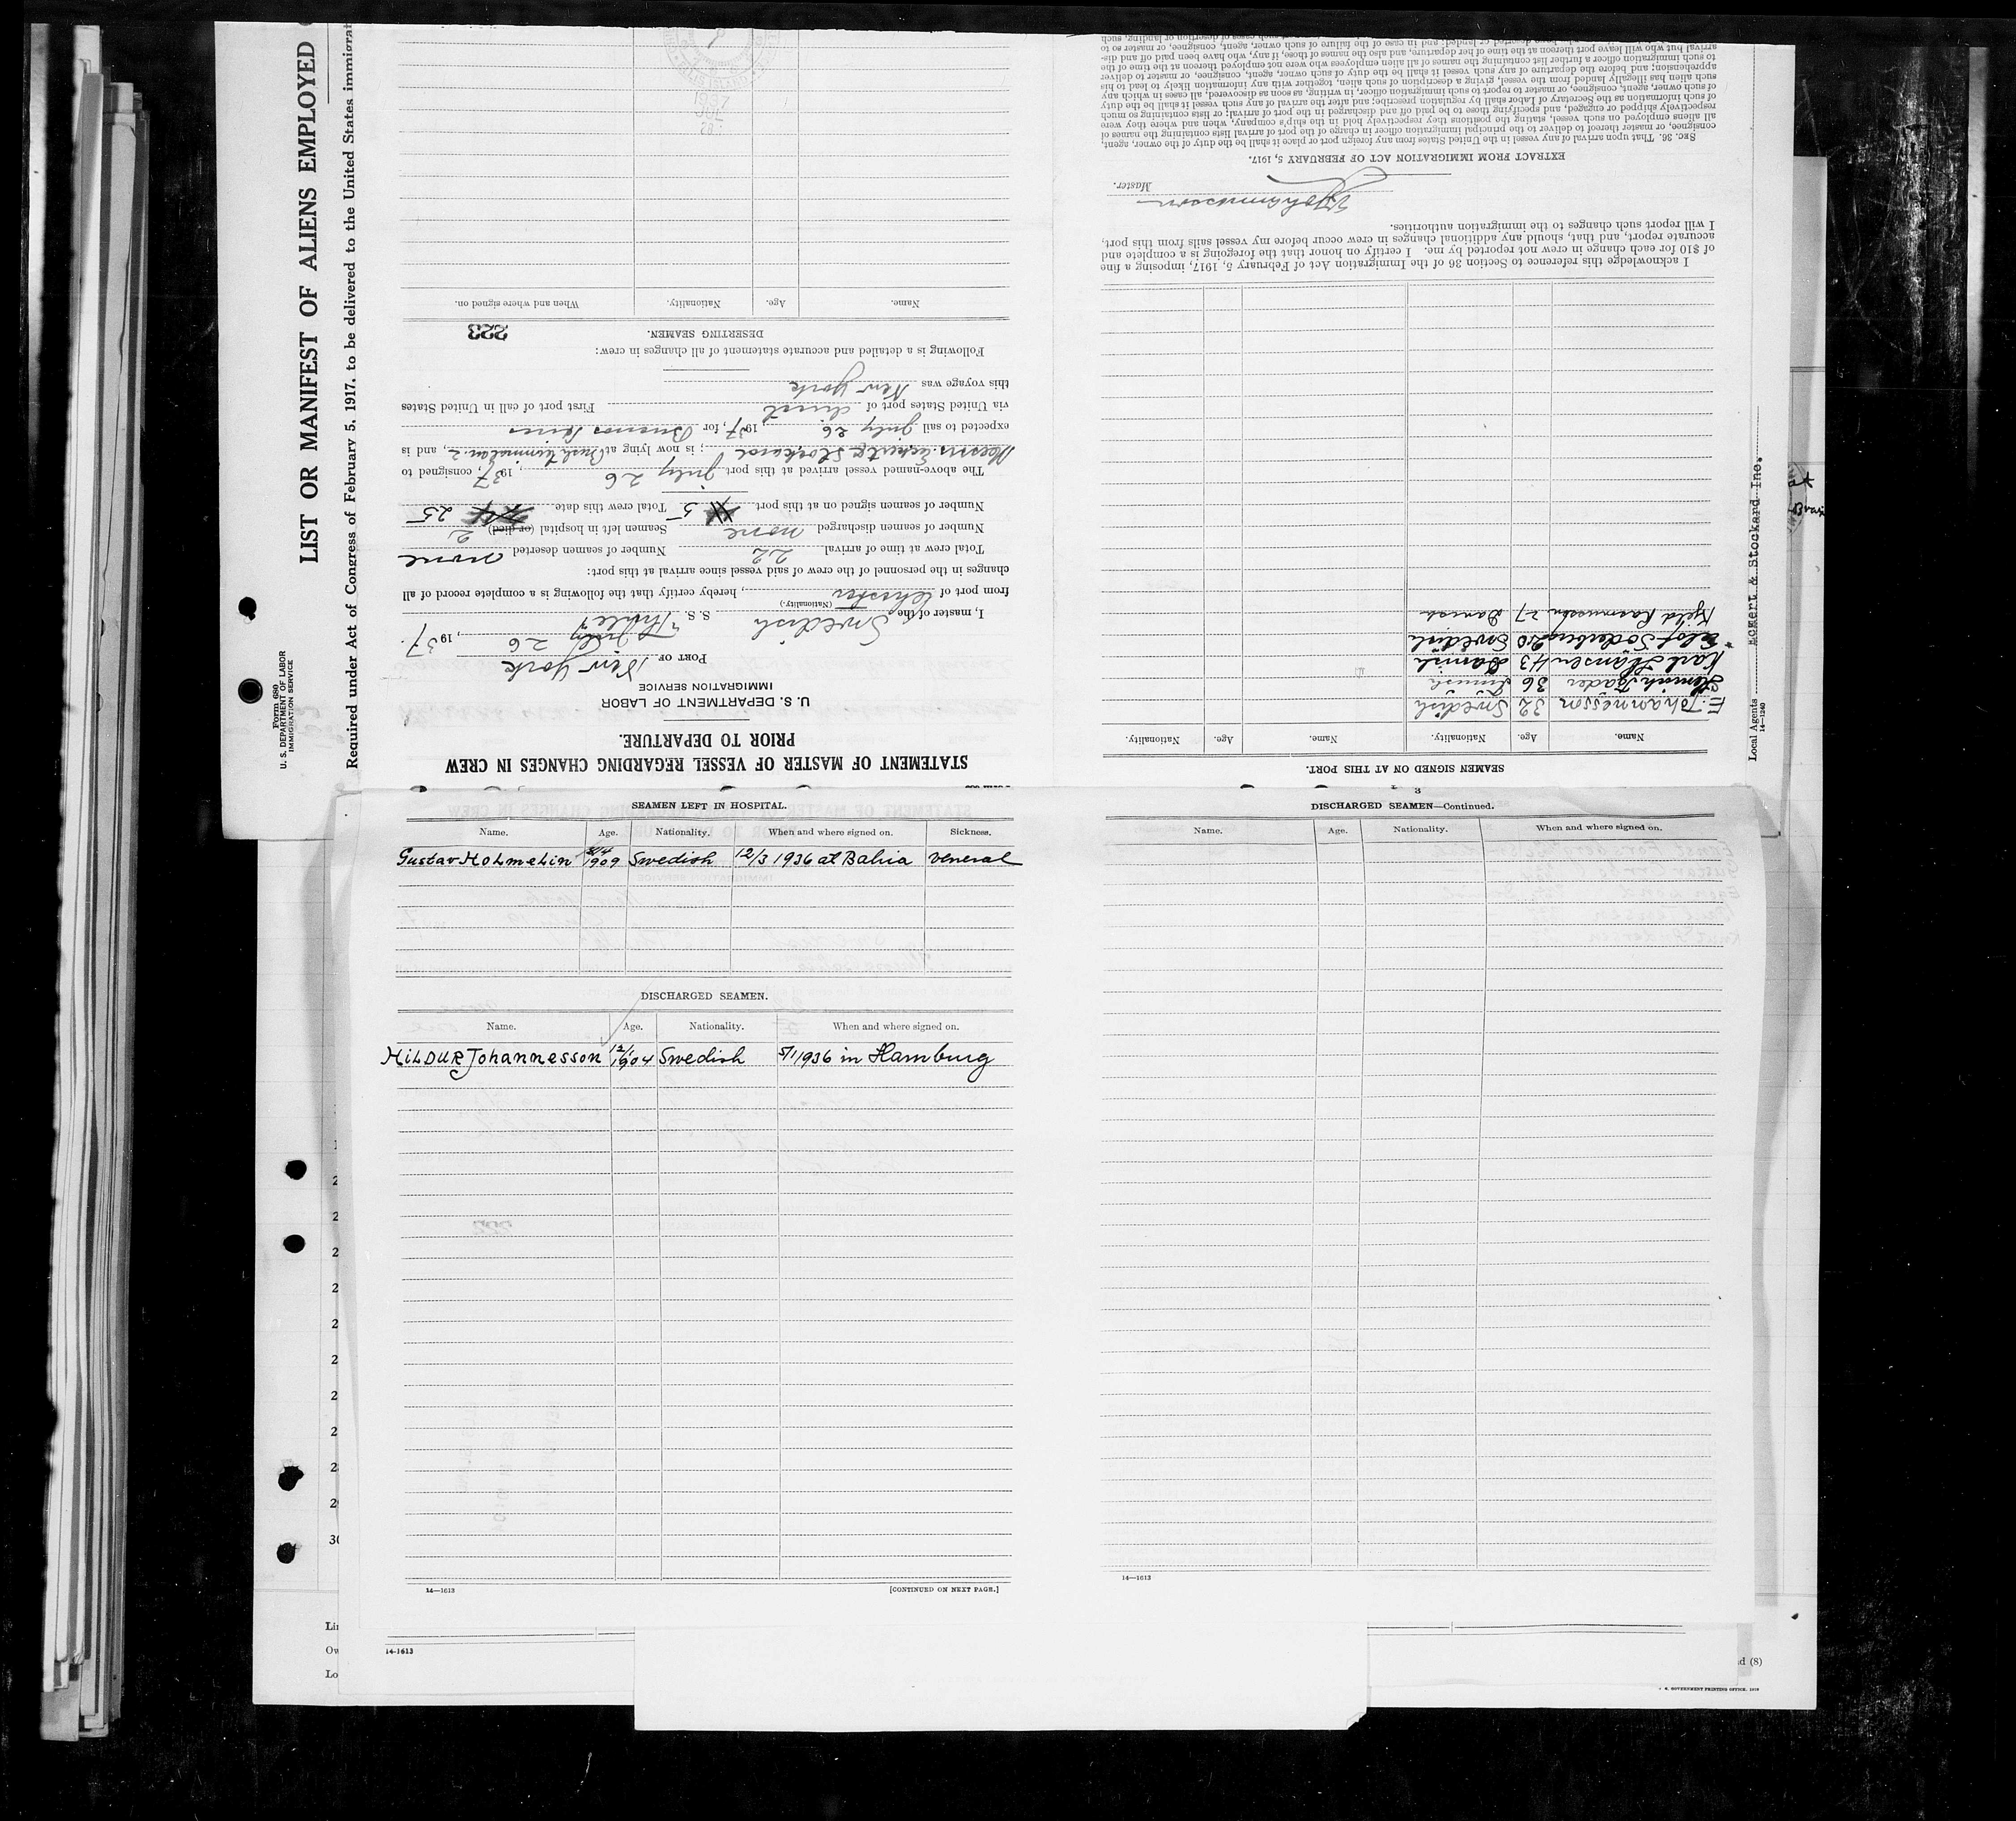 LIST OR MANIFEST OF ALIENS EMPLOYED
Required under Act of Congress of February 5, 1917, to be delivered to the United States immigrat
Form 680
U. S. DEPARTMENT OF LABOR
IMMIGRATION SERVICE
STATEMENT OF MASTER OF VESSEL REGARDING CHANGES IN CREW
PRIOR TO DEPARTURE.
U. S. DEPARTMENT OF LABOR
IMMIGRATION SERVICE
PORT OF New York
July 26, 1937.
I, master of the Swedish S. S. "Thule"
(Nationality.)
from port of , hereby certify that the following is a complete record of all
changes in the personnel of the crew of said vessel since arrival at this port:
Total crew at time of arrival 22 Number of seamen deserted none
Number of seamen discharged none Seamen left in hospital (or died) 2
Number of seamen signed on at this port 5 Total crew this date 25
The above-named vessel arrived at this port July 26, 1937, consigned to
Messrs. Eckert & Stockard; is now lying at Bush Terminal, and is
expected to sail July 26, 1937, for Buenos Aires
via United States port of direct First port of call in United States
this voyage was New York
Following is a detailed and accurate statement of all changes in crew:
223
DESERTING SEAMEN.
Name. Age. Nationality. When and where signed on.
1937
SEAMEN SIGNED ON AT THIS PORT.
Name. Age. Nationality. Name. Age. Nationality.
E. Johannesson 32 Swedish
36
Karl Hansen 43 Danish
Elof Söderberg 20 Swedish
Kjeld Rasmussen 27 Danish
I acknowledge this reference to Section 36 of the Immigration Act of February 5, 1917, imposing a fine
of $10 for each change in crew not reported by me. I certify on honor that the foregoing is a complete and
accurate report, and that, should any additional changes in crew occur before my vessel sails from this port,
I will report such changes to the immigration authorities.
Johannesson
Master.
EXTRACT FROM IMMIGRATION ACT OF FEBRUARY 5, 1917.
SEC. 36. That upon arrival of any vessel in the United States from any foreign port or place it shall be the duty of the owner, agent,
consignee, or master thereof to deliver to the principal immigration officer in charge of the port of arrival lists containing the names of
all aliens employed on such vessel, stating the positions they respectively hold in the ship's company, when and where they were
respectively shipped or engaged, and specifying those to be paid off and discharged in the port of arrival; or lists containing so much
of such information as the Secretary of Labor shall by regulation prescribe; and after the arrival of any such vessel it shall be the duty
of such owner, agent, consignee, or master to report to such immigration officer, in writing, as soon as discovered, all cases in which any
such alien has illegally landed from the vessel, giving a description of such alien, together with any information likely to lead to his
apprehension; and before the departure of any such vessel it shall be the duty of such owner, agent, consignee, or master to deliver
to such immigration officer a further list containing the names of all alien employees who were not employed thereon at the time of the
arrival but who will leave port thereon at the time of her departure, and also the names of those, if any, who have been paid off and dis-
Local Agents Eckert & Stockard Inc.
14-1240
SEAMEN LEFT IN HOSPITAL.
Name. Age. Nationality. When and where signed on. Sickness.
Gustav Holmelin 3/4 1909 Swedish 12/3 1936 at Bahia veneral
DISCHARGED SEAMEN.
Name. Age. Nationality. When and where signed on.
HILDUR Johannesson 12/1 1904 Swedish 5/1 1936 in Hamburg
14—1613 [CONTINUED ON NEXT PAGE.]
3
DISCHARGED SEAMEN—Continued.
Name. Age. Nationality. When and where signed on.
14—1613
30
Lin
Ow
Lo
14-1613
d (8)
S. GOVERNMENT PRINTING OFFICE